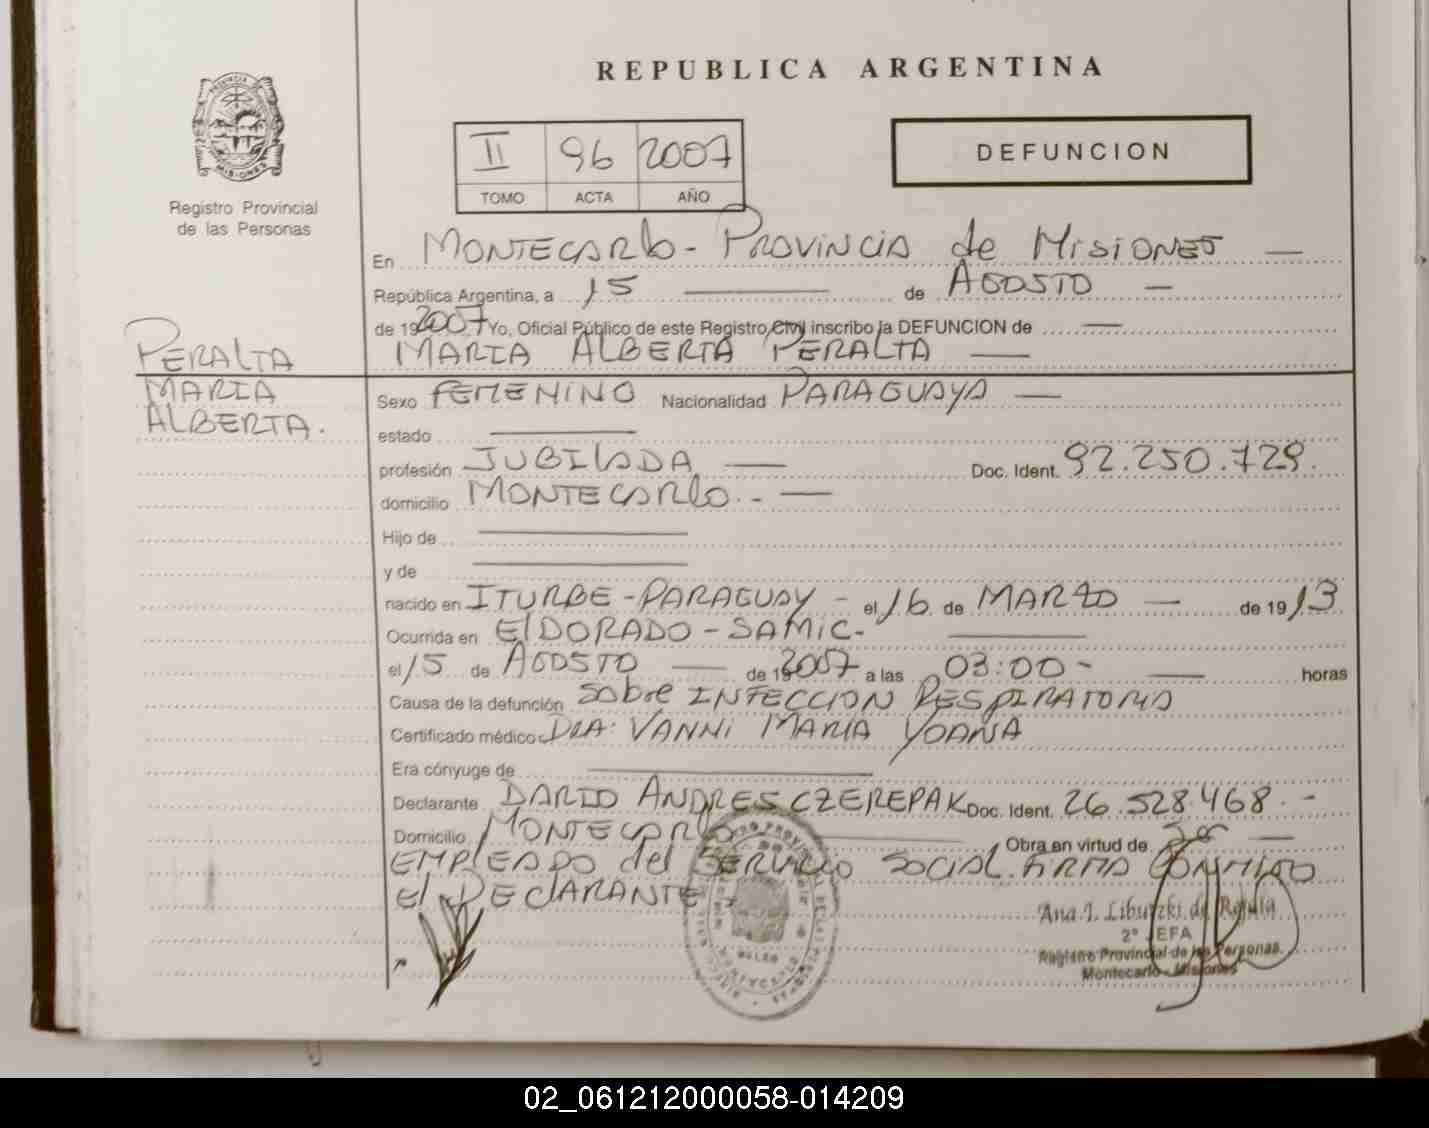 REPUBLICA ARGENTINA
II 96 2007
TOMO ACTA AÑO
DEFUNCION
PROVINCIA DE
MISIONES
Registro Provincial
de las Personas
En MONTECARlo - PROVINCIA de MISIONES
República Argentina, a 15 de AGOSTO
de 192007 Yo, Oficial Público de este Registro Civil inscribo la DEFUNCION de
MARIA ALBERTA PERALTA
PERALTA
MARIA
ALBERTA.
Sexo FEMENINO Nacionalidad PARAGUAYA
estado
profesión JUBILADA Doc. Ident. 92.250.729.
domicilio MONTECARlo.-
Hijo de
y de
nacido en ITURBE - PARAGUAY - el 16 de MARZO de 1913
Ocurrida en ElDORADO - SAMIC.
el 15 de AGOSTO de 192007 a las 03:00 - horas
Causa de la defunción SObRe INFECCION RESPIRATORIA
Certificado médico DRA: VANNI MARIA YOANA
Era cónyuge de
Declarante DARIO ANDRES CZEREPAK Doc. Ident. 26.528.468.-
Domicilio MONTECARlo Obra en virtud de
EMPLEADO del SERVICIO SOCIAL. FIRMA CONMIGO
El DEClARANTE
Ana I. Libutzki de
2° JEFA
Registro Provincial de las Personas
Montecarlo - Misiones
02_061212000058-014209